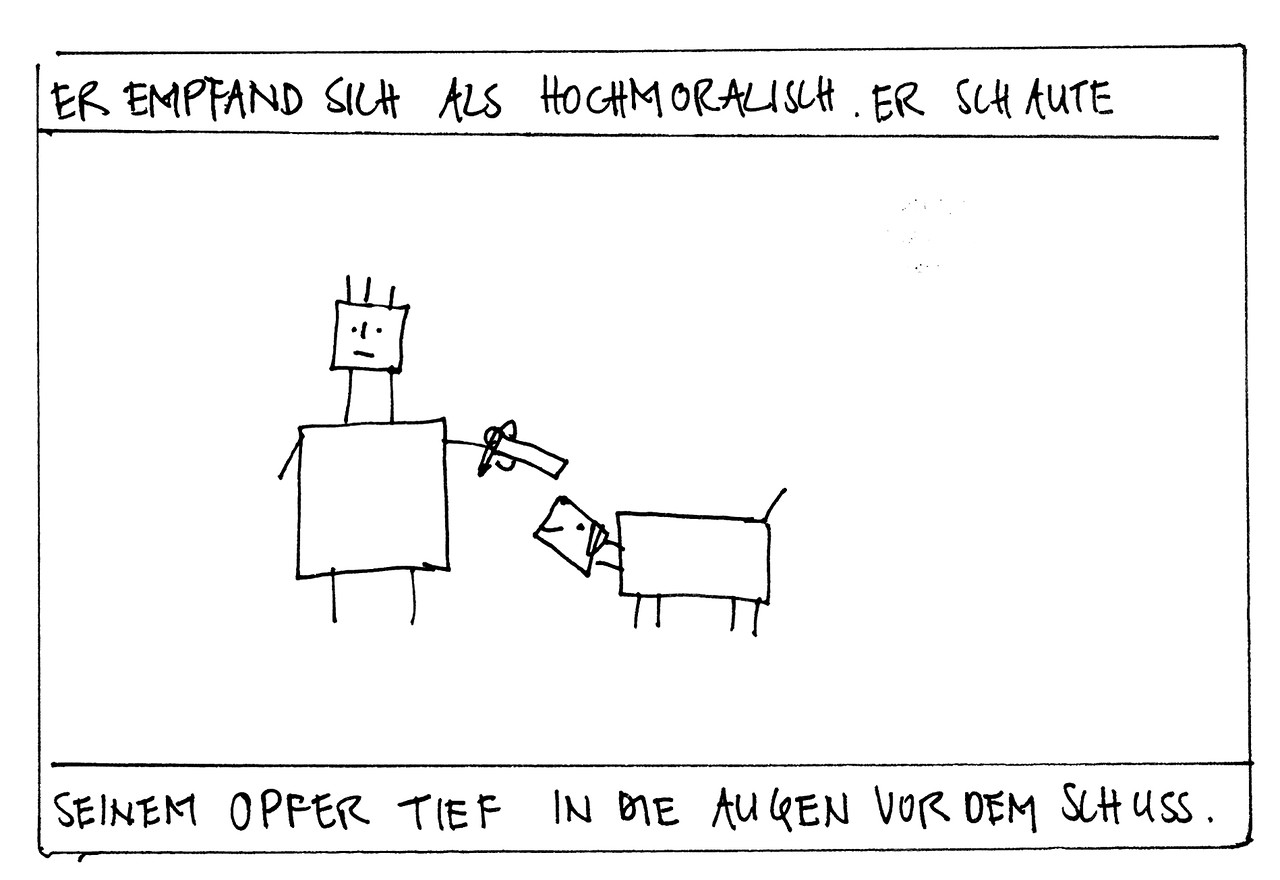 ER EMPFAND SICH ALS HOCHMORALISCH. ER SCHAUTE
SEINEM OPFER TIEF IN DIE AUGEN VOR DEM SCHUSS.